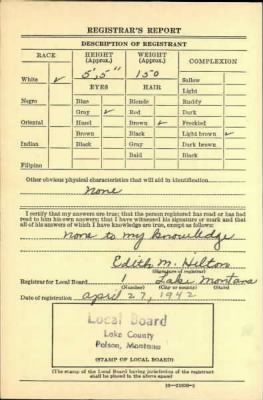 REGISTRAR'S REPORT
DESCRIPTION OF REGISTRANT
RACE HEIGHT (Approx.) WEIGHT (Approx.) COMPLEXION
White ✓ 5'5" 150 Sallow
EYES HAIR Light
Negro Blue Blonde Ruddy
Gray ✓ Red Dark
Oriental Hazel Brown ✓ Freckled
Brown Black Light brown ✓
Indian Black Gray Dark brown
Bald Black
Filipino
Other obvious physical characteristics that will aid in identification
None
I certify that my answers are true; that the person registered has read or has had
read to him his own answers; that I have witnessed his signature or mark and that
all of his answers of which I have knowledge are true, except as follows:
None to my knowledge
Edith M. Hilton
(Signature of registrar)
Registrar for Local Board 1 Lake Montana
(Number) (City or county) (State)
Date of registration April 27, 1942
Local Board
Lake County
Polson, Montana
(STAMP OF LOCAL BOARD)
(The stamp of the Local Board having jurisdiction of the registrant
shall be placed in the above space)